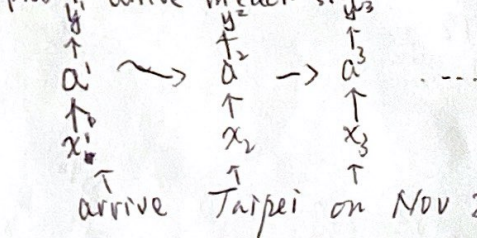 y¹ y² y³
↑ ↑ ↑
a¹ → a² → a³ ....
↑ ↑ ↑
x¹ x₂ x₃
↑ ↑ ↑
arrive Taipei on Nov